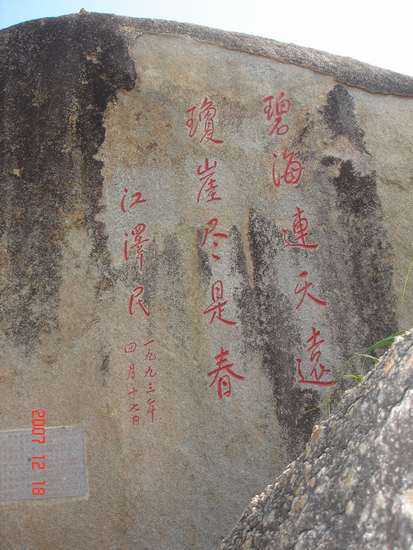 碧海連天遠
瓊崖尽是春
江澤民
一九九三年
四月十九日
2007 12 18